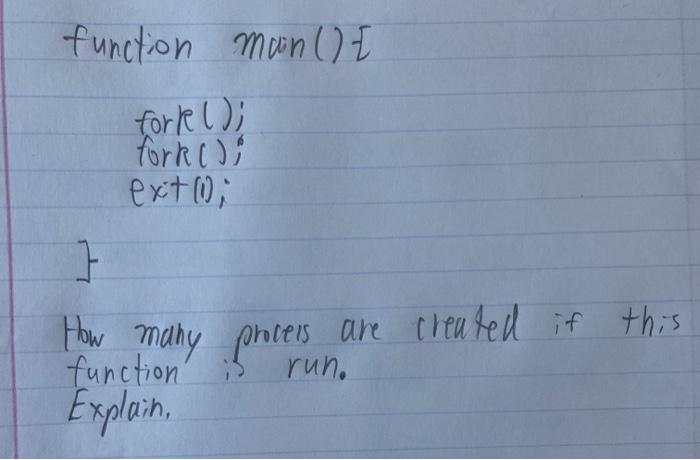 function main(){
fork();
fork();
exit(1);
}
How many process are created if this
function is run.
Explain.